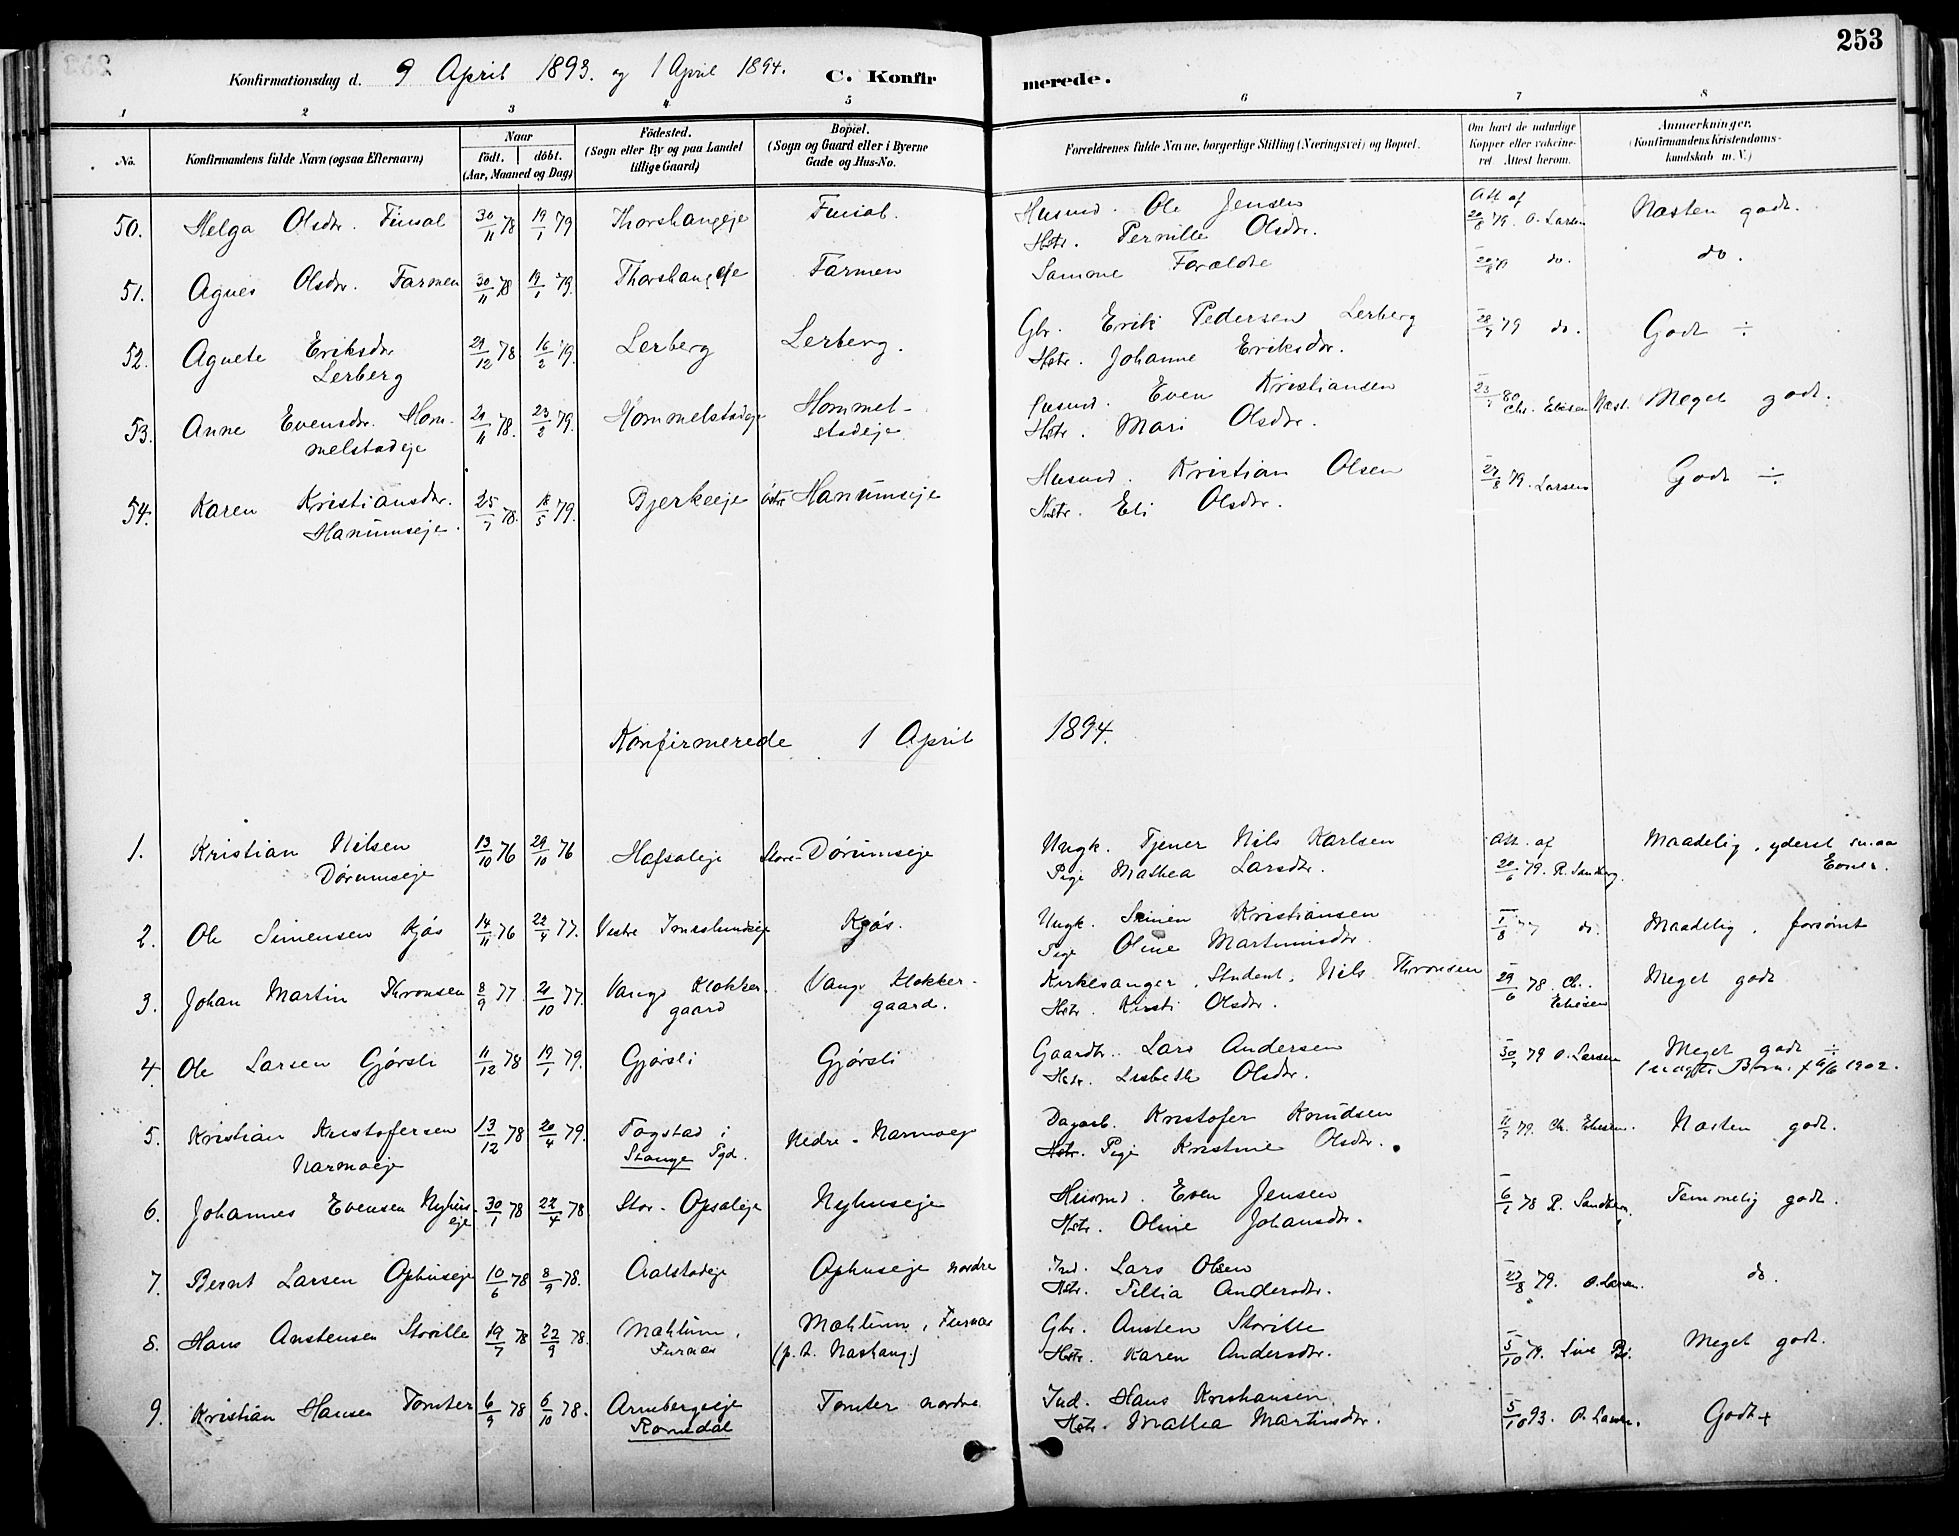 253
Konfirmationsdag d. 9 April 1893. og 1 April 1894. C. Konfirmerede.
1 2 3 4 5 6 7 8
No.
Konfirmandens fulde Navn (ogsaa Efternavn)
Naar
født. døbt.
(Aar, Maaned og Dag)
Fødested.
(Sogn eller By og paa Landet
tillige Gaard)
Bopæl.
(Sogn og Gaard eller i Byerne
Gade og Hus-No.
Forældrenes fulde Navne, borgerlige Stilling (Næringsvei) og Bopæl.
Om havt de naturlige
Kopper eller vaksineret
Attest herom.
Anmærkninger.
(Konfirmandens Kristendomskundskab
m. V.)
50. Helga Olsdr. Finsal 30/11 78 19/1 79 Thorshaugeje Finsal. Husmd. Ole Jensen Att. af
Hstr. Pernille Olsdr. 20/8 79. O. Larsen Næsten godt.
51. Agnes Olsdr. Farmen 30/11 78 19/1 79. Thorshaugeje Farmen Samme Forældre do. do.
52. Agnete Eriksdr. 29/12 78 16/2 79. Lerberg Lerberg. Gbr. Erik Pedersen Lerberg 28/7 79 do. Godt ÷
Lerberg Hstr. Johanne Eriksdr.
53. Anne Evensdr. Hom- 21/11 78. 23/2 79. Hommelstadeje Hommel- Husmd. Even Kristiansen Ch. Eliesen Meget godt.
melstadeje stadeje Hstr. Mari Olsdr.
54. Karen Kristiansdr. 25/7 78. 18/5 79. Bjerkeeje østr. Hanumseje Husmd. Kristian Olsen 27/8 79. Larsen Godt ÷
Hanumseje. Hstr. Eli Olsdr.
Konfirmerede 1 April 1894.
1. Kristian Nilsen 13/10 76 29/10 76 Hafsaleje Store-Dørumseje Ungk. Tjener Nils Karlsen Att. af Maadelig, yderst smaa
Dørumseje Pige Mathea Larsdr. 20/6 79. R. Sandberg. Evner.
2. Ole Simensen Kjøs 14/11 76 22/4 77. Vestre Imeslundeje Kjøs. Ungk. Simen Kristiansen 1/8 77 do. Maadelig, forsømt
Pige Oline Martinusdr.
3. Johan Martin Thronsen 8/9 77. 21/10 77. Vangs Klokker- Vangs Klokker- Kirkesanger, Student, Nils Thronsen 29/6 78. Ch. Meget godt
gaard gaard. Hstr. Kirsti Olsdr. Eliesen
4. Ole Larsen Gjørsli 11/12 78 19/1 79. Gjørsli Gjørsli Gaardbr. Lars Andersen 30/7 79 O. Larsen Meget godt ÷
Hstr. Lisbeth Olsdr. 1902.
5. Kristian Kristofersen 13/12 78 20/4 79. Fogstad i Nedre-Narmoeje Dagarb. Kristofer Knudsen 11/7 79. Ch. Eliesen. Næsten godt.
Narmoeje Stange Pgd. Pige Kristine Olsdr.
6. Johannes Evensen Nyhus- 30/1 78 22/4 78 Stor-Opsaleje Nyhuseje Husmd. Even Jensen 6/6 78 R. Sandberg Temmelig godt.
eje Hstr. Oline Johansdr.
7. Bernt Larsen Ophuseje 10/6 78 8/9 78. Aalstadeje Ophuseje nordre Ind. Lars Olsen 27/8 79. O. Larsen. do.
Hstr. Tillia Andersdr.
8. Hans Anstensen Storille 19/7 78 22/9 78. Mæhlum, Mæhlum, Furnæs Gbr. Ansten Storille 5/10 79. Meget godt.
Furnæs (p. t. Nashaug.) Hstr. Karen Andersdr.
9. Kristian Hansen Tomter 6/9 78 6/10 78. Arnebergseje Tomter nordre Ind. Hans Kristiansen 5/10 93. O. Larsen. Godt +
Romedal Hstr. Mathea Martinsdr.